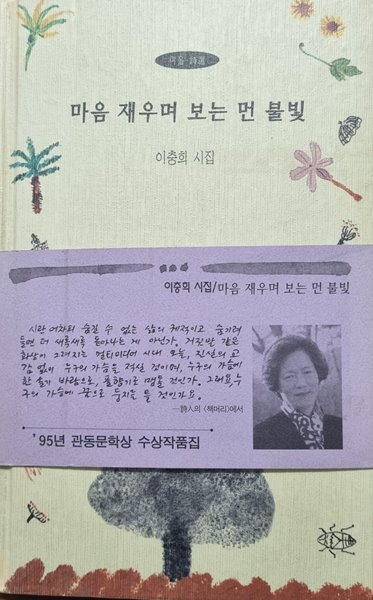 마음 재우며 보는 먼 불빛
이충희 시집
이충희 시집/마음 재우며 보는 먼 불빛
시란 어차피 숨길 수 없는 삶의 궤적이고 숨기려
들면 더 새록새록 돋아나는 게 아닌가. 거짓말 같은
화상이 그려지는 멀티미디어 시대 오늘, 진실의 고
감 없이 누구의 가슴을 적실 것이며, 누구의 가슴에
한 줄기 바람으로, 풀향기로 맺을 것인가. 그래요, 누
구의 가슴에 꿈으로 둥지를 틀 것인가요.
—詩人의 〈책머리〉에서
'95년 관동문학상 수상작품집